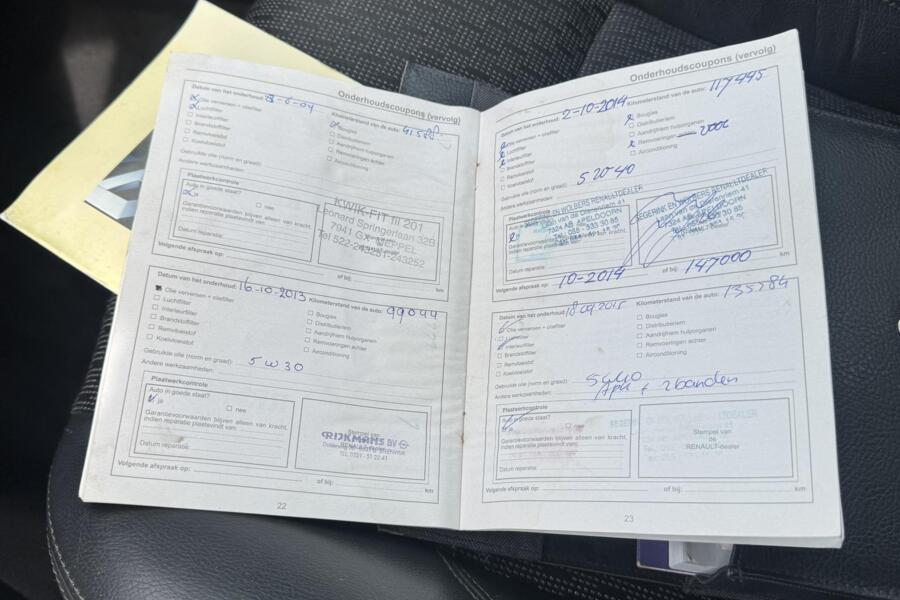 Onderhoudscoupons (vervolg)
Datum van het onderhoud:
Kilometerstand van de auto:
Olie verversen + oliefilter
Luchtfilter
Interieurfilter
Brandstoffilter
Remvloeistof
Koelvloeistof
Bougies
Distributieriem
Aandrijfriem hulporganen
Remvoeringen achter
Airconditioning
Gebruikte olie (norm en graad):
Andere werkzaamheden:
Plaatwerkcontrole
Auto in goede staat?
ja
nee
Garantievoorwaarden blijven alleen van kracht,
indien reparatie plaatsvindt van:
Datum reparatie:
KWIK-FIT fil 201
Leonard Springerlaan 32B
7941 GX MEPPEL
Tel 522-243251-243252
Volgende afspraak op:
of bij:
km
Datum van het onderhoud: 16-10-2013 Kilometerstand van de auto: 99044
Olie verversen + oliefilter
Luchtfilter
Interieurfilter
Brandstoffilter
Remvloeistof
Koelvloeistof
Bougies
Distributieriem
Aandrijfriem hulporganen
Remvoeringen achter
Airconditioning
Gebruikte olie (norm en graad): 5w30
Andere werkzaamheden:
Plaatwerkcontrole
Auto in goede staat?
ja
nee
Garantievoorwaarden blijven alleen van kracht,
indien reparatie plaatsvindt van:
Datum reparatie:
RIJKMANS BV
Volgende afspraak op:
of bij:
km
22
Onderhoudscoupons (vervolg)
Datum van het onderhoud: 2-10-2014 Kilometerstand van de auto: 117445
Olie verversen + oliefilter
Luchtfilter
Interieurfilter
Brandstoffilter
Remvloeistof
Koelvloeistof
Bougies
Distributieriem
Aandrijfriem hulporganen
Remvoeringen
Airconditioning
Gebruikte olie (norm en graad):
Andere werkzaamheden:
Plaatwerkcontrole
WOLBERS RENAULTDEALER
Laan van de Dierenriem 41
7324 AB APELDOORN
Tel. 055 - 533 30 85
Datum reparatie:
Volgende afspraak op: 10-2014 of bij: 147000 km
Datum van het onderhoud: 18 09 2015 Kilometerstand van de auto: 135284
Olie verversen + oliefilter
Interieurfilter
Brandstoffilter
Remvloeistof
Koelvloeistof
Bougies
Distributieriem
Aandrijfriem hulporganen
Remvoeringen achter
Airconditioning
Gebruikte olie (norm en graad): 5w40
Andere werkzaamheden: APK + 2 banden
Plaatwerkcontrole
Auto in goede staat?
ja
Garantievoorwaarden blijven alleen van kracht,
indien reparatie plaatsvindt van:
Datum reparatie:
Stempel van
de
RENAULT-dealer
Volgende afspraak op:
of bij:
km
23